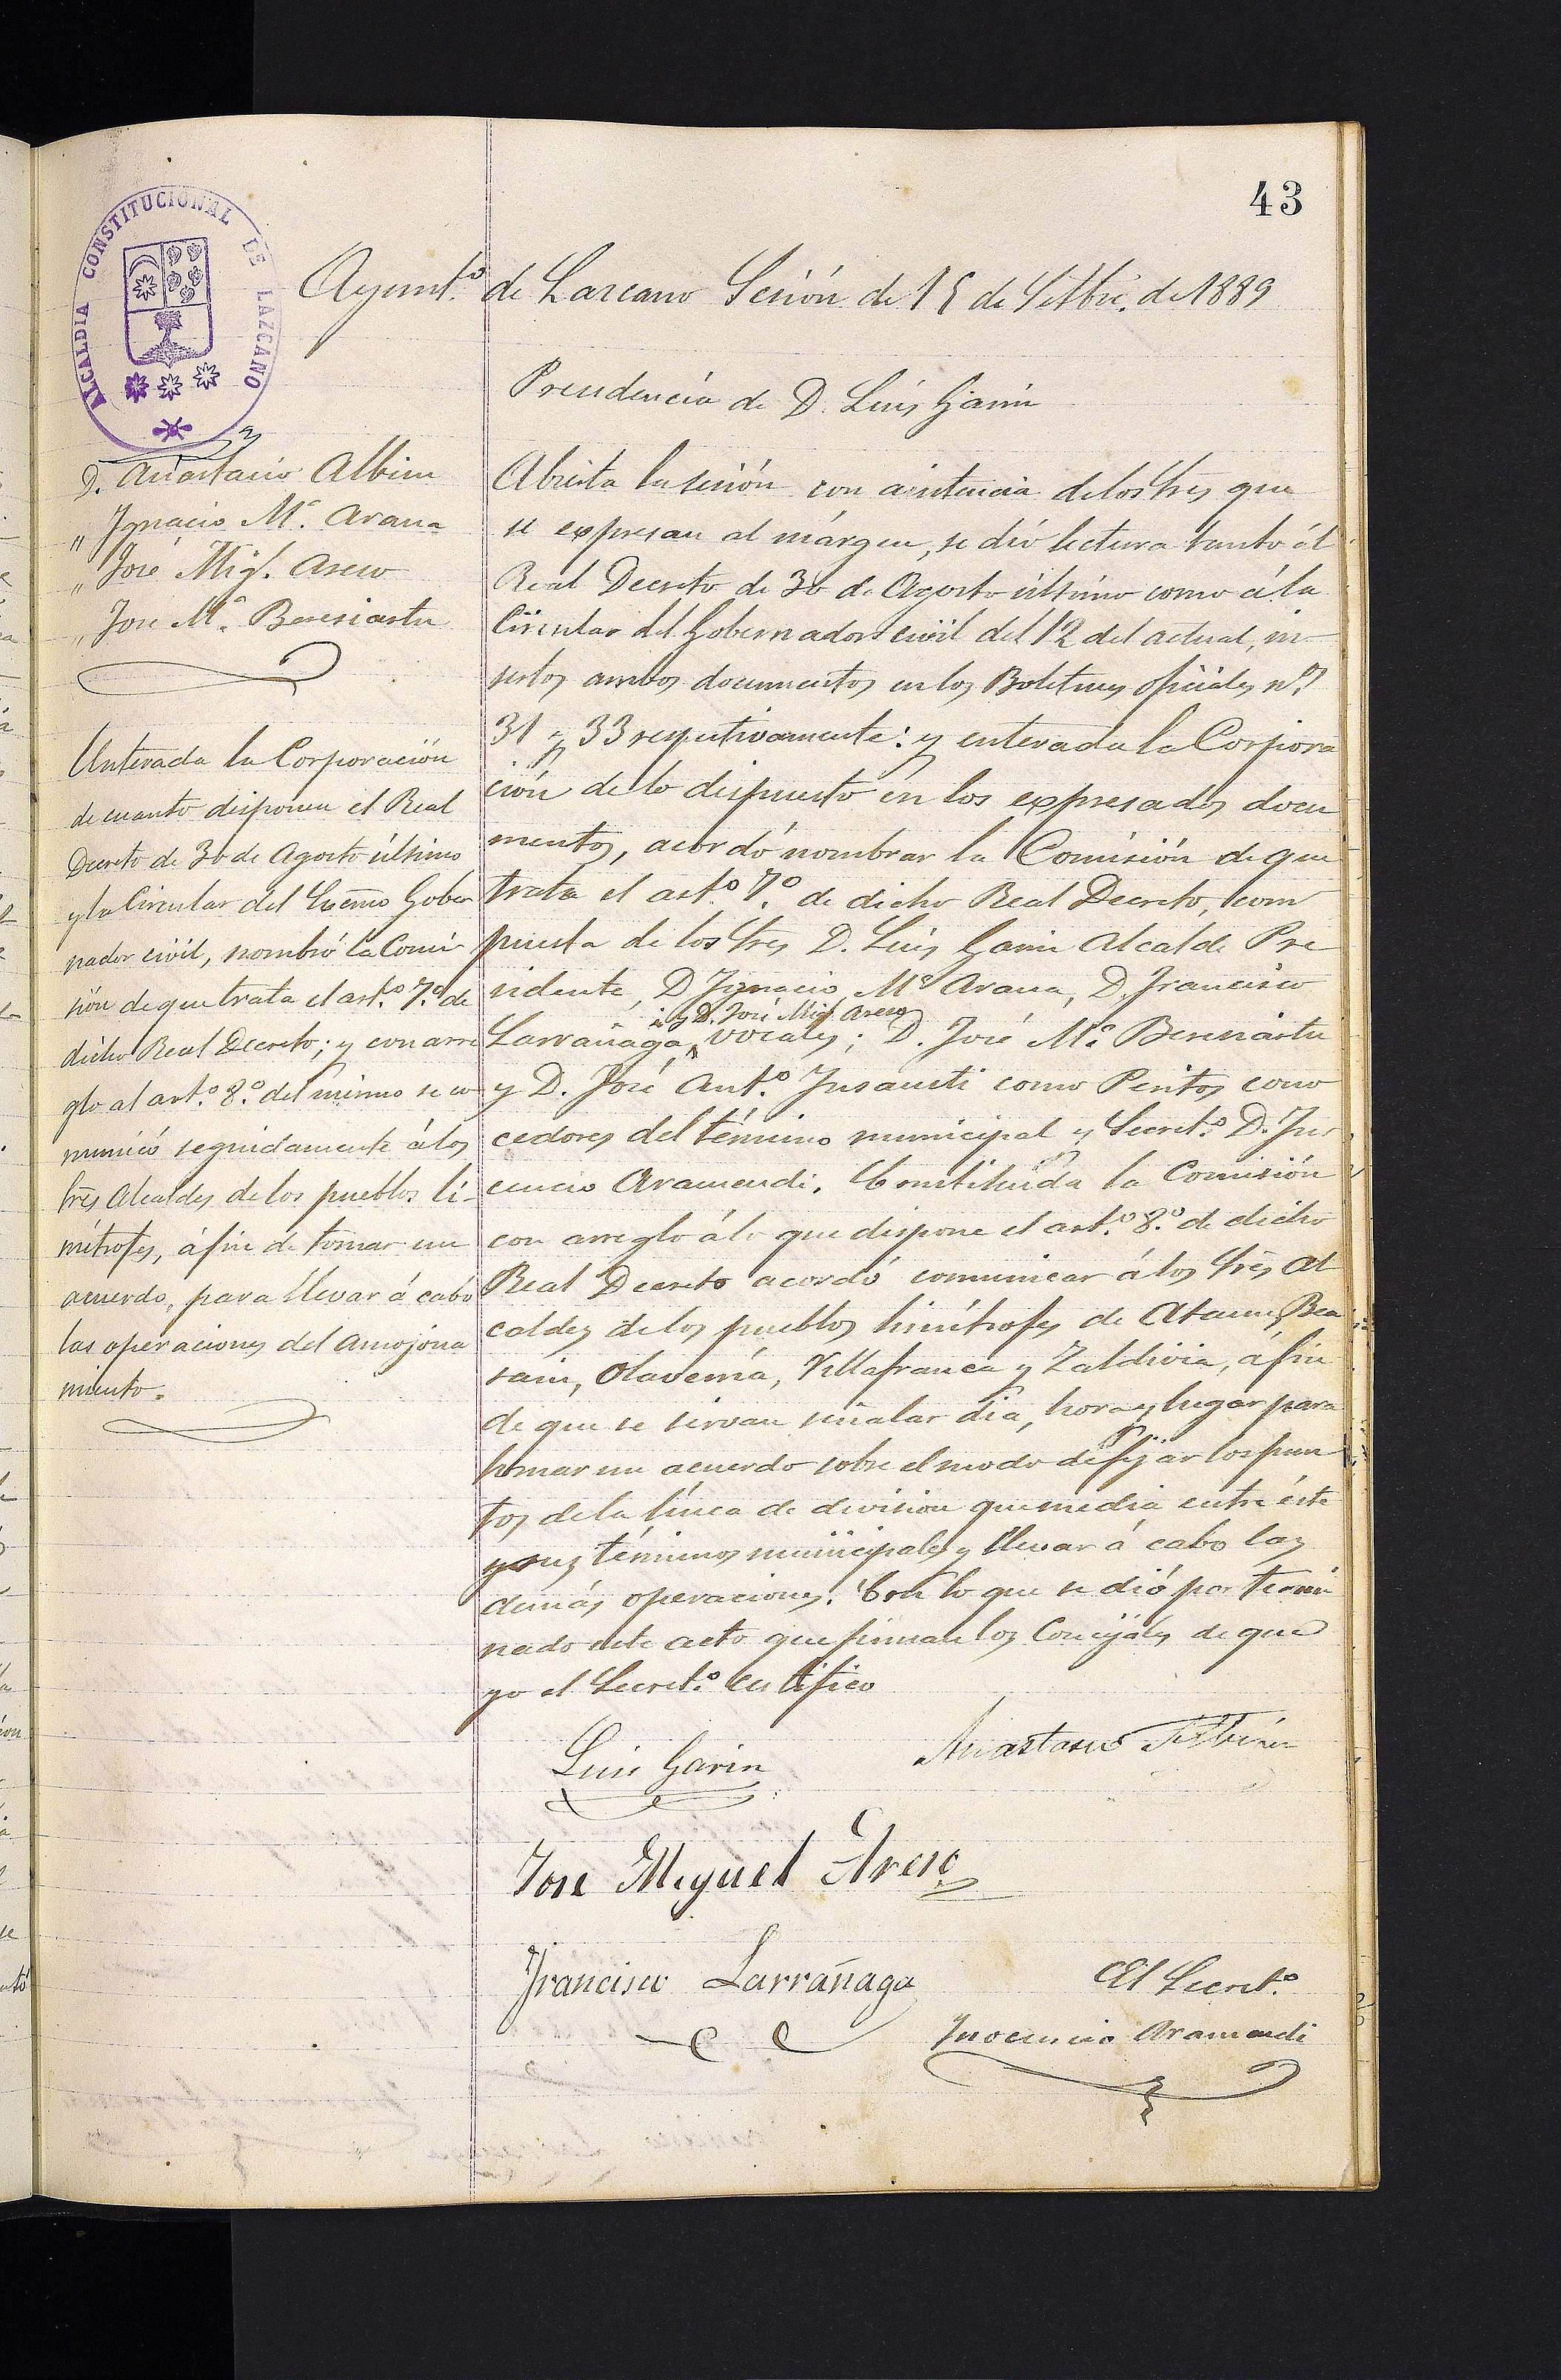 43
ALCALDIA CONSTITUCIONAL DE LAZCANO
Ayunt.º de Lazcano Sesión de 15 de Setbre. de 1889
Presidencia de D. Luis Garin
D. Anastasio Albisu
„ Ignacio M.ª Arana
„ José Mig.l Areso
„ José M.ª Beresiartu
Enterada la Corporación
de cuanto disponen el Real
Decreto de 30 de Agosto último
y la Circular del Excmo Gober
nador civil, nombró la Comi
sión de que trata el art.º 7.º de
dicho Real Decreto; y con arre
glo al art.º 8.º del mismo se co
municó seguidamente á los
Sres Alcaldes de los pueblos li-
mítrofes, á fin de tomar un
acuerdo, para llevar á cabo
las operaciones del amojona
miento.
Abierta la sesión con asistencia de los Sres que
se expresan al márgen, se dió lectura tanto al
Real Decreto de 30 de Agosto último como á la
Circular del Gobernador civil del 12 del actual, in-
sertos ambos documentos en los Boletines oficiales n.os
31 y 33 respectivamente: y enterada la Corpora
ción de lo dispuesto en los expresados docu
mentos, acordó nombrar la Comisión de que
trata el art.º 7.º de dicho Real Decreto, com
puesta de los Sres D. Luis Garin Alcalde Pre
sidente, D Ignacio M.ª Arana, D. Francisco
y D. José Mig.l Areso
Larrañaga vocales; D. José M.ª Beresiartu
y D. José Ant.º Insausti como Peritos cono
cedores del término municipal y Secret.º D. Ino
cencio Aramendi. Constituida la Comisión
con arreglo á lo que dispone el art.º 8.º de dicho
Real Decreto acordó comunicar á los Sres Al
caldes de los pueblos limítrofes de Ataun, Bea
sain, Olaverría, Villafranca y Zaldivia, á fin
de que se sirvan señalar dia, hora y lugar para
tomar un acuerdo sobre el modo de fijar los pun
tos de la línea de division que media entre éste
y sus términos municipales y llevar á cabo las
demás operaciones. Con lo que se dió por termi
nado este acto que firman los Concejales de que
yo el Secret.º certifico
Luis Garin
Anastasio Albisu
Jose Miguel Areso
Francisco Larrañaga
El Secret.º
Inocencio Aramendi